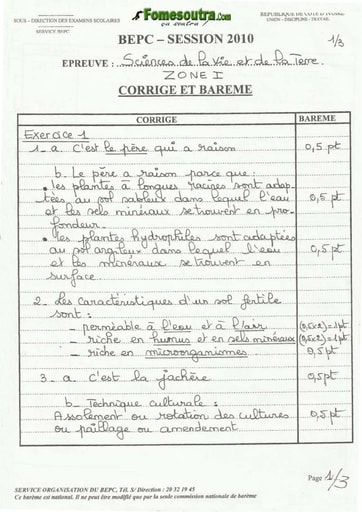 SOUS - DIRECTION DES EXAMENS SCOLAIRES
SERVICE BEPC
Fomesoutra.com
ça soutra !
REPUBLIQUE DE COTE D'IVOIRE
UNION - DISCIPLINE - TRAVAIL
BEPC – SESSION 2010
1/3
EPREUVE : Sciences de la Vie et de la Terre
ZONE I
CORRIGE ET BAREME
CORRIGE BAREME
Exercice 1
1_ a. C'est le père qui a raison 0,5 pt
b. Le père a raison parce que :
• les plantes à longues racines sont adap-
tées au sol sableux dans lequel l'eau 0,5 pt
et les sels minéraux se trouvent en pro-
fondeur.
• les plantes hydrophiles sont adaptées
au sol argileux dans lequel l'eau 0,5 pt
et les minéraux se trouvent en
surface.
2_ les caractéristiques d'un sol fertile
sont :
_ perméable à l'eau et à l'air (0,5x2) = 1pt
_ riche en humus et en sels minéraux (0,5x2) = 1pt
_ riche en microorganismes 0,5 pt
3_ a. C'est la jachère 0,5pt
b_ Technique culturale :
Assolement ou rotation des cultures 0,5pt
ou paillage ou amendement.
Page 1/3
SERVICE ORGANISATION DU BEPC, Tél. S/ Direction : 20 32 19 45
Ce barème est national. Il ne peut être modifié que par la seule commission nationale de barème